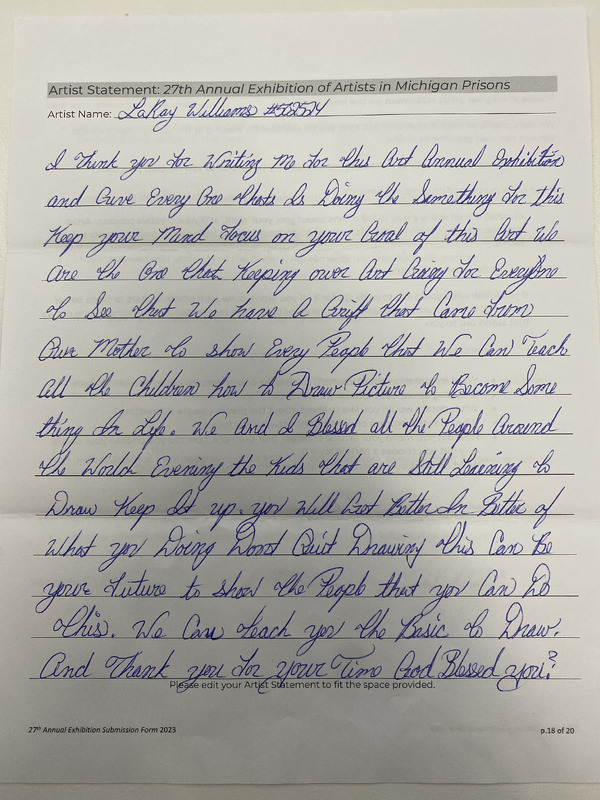 Artist Statement: 27th Annual Exhibition of Artists in Michigan Prisons
Artist Name: LaRay Williams #512524
I Think you for Writing Me for this Art Annual Exhibition
and Give Every One thats Is Doing the Samething for this
Keep your Mind Focus on your Goal of this Art We
are the One that Keeping over Art Going for EveryOne
to See that We have A Griff that Came from
Our Mother to show Every People that We Can Teach
all the Children how to Draw Picture to Become Some
thing In Life. We And I Blessed all the People Around
the World Evening the Kids that are Still Learining to
Draw Keep It up. you Will Got Better In Better of
What you Doing Dont Quit Drawing this Can Be
your future to show the People that you Can Do
this. We Can teach you the Basic to Draw.
And Thank you for your Time God Blessed you?
Please edit your Artist Statement to fit the space provided.
27th Annual Exhibition Submission Form 2023
p.18 of 20